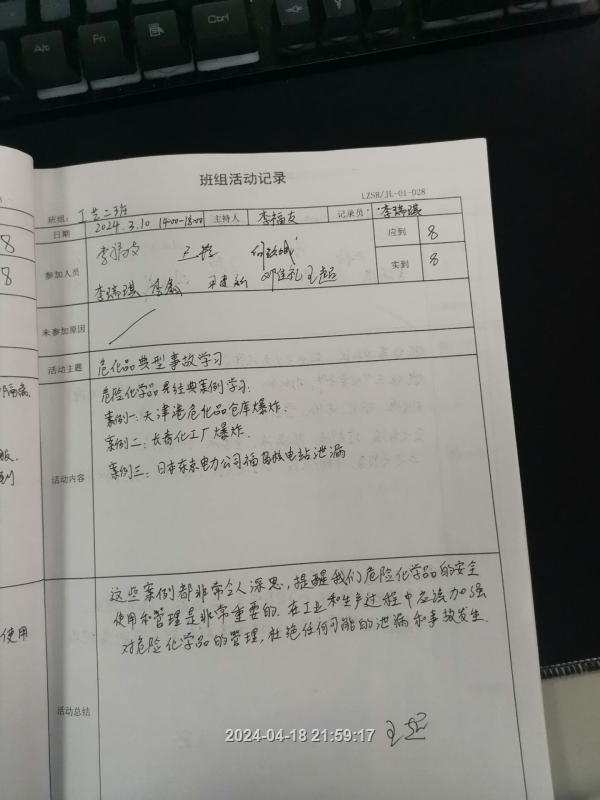 Alt
Fn
Ctrl
班组活动记录
LZSR/JL-01-028
班组: 工艺二班
日期 2024.3.10 14:00-18:00 主持人 李福友 记录员 李瑞琪
参加人员
应到 8
李瑞琪
实到 8
未参加原因
活动主题 危化品典型事故学习
危险化学品异经典案例学习:
案例一: 天津港危化品仓库爆炸.
案例二: 长春化工厂爆炸.
活动内容 案例三: 日本东京电力公司福岛核电站泄漏
这些案例都非常令人深思, 提醒我们危险化学品的安全
使用和管理是非常重要的. 在工业和生产过程中应该加强
对危险化学品的管理, 杜绝任何可能的泄漏和事故发生.
活动总结
王超
2024-04-18 21:59:17
8
8
使用